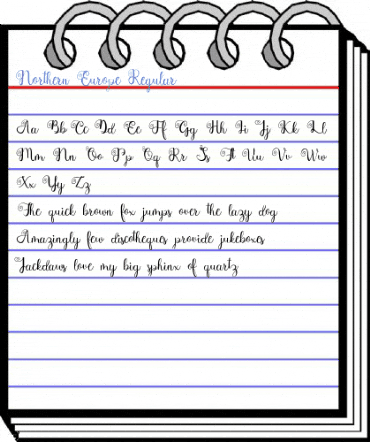 Northern Europe Regular
Aa Bb Cc Dd Ee Ff Gg Hh Ii Jj Kk Ll
Mm Nn Oo Pp Qq Rr Ss Tt Uu Vv Ww
Xx Yy Zz
The quick brown fox jumps over the lazy dog
Amazingly few discotheques provide jukeboxes
Jackdaws love my big sphinx of quartz